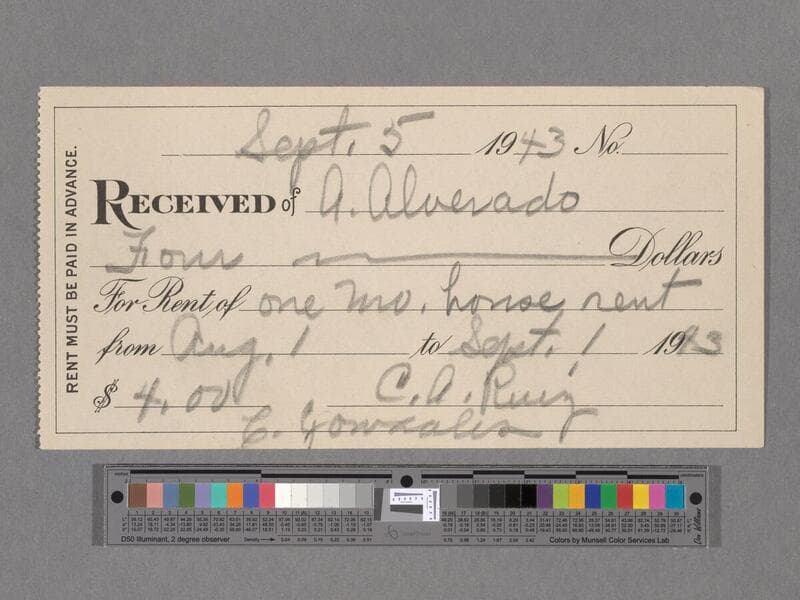 RENT MUST BE PAID IN ADVANCE.
Sept. 5 1943 No.
RECEIVED of A. Alverado
Four Dollars
For Rent of one mo. house rent
from Aug. 1 to Sept. 1 1943
$ 4.00 C. A. Ruiz
C. Gonzales
D50 Illuminant, 2 degree observer Density Colors by Munsell Color Services Lab